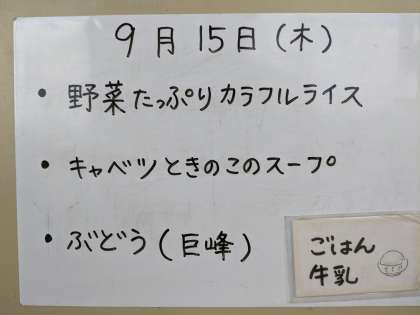 9月15日(木)
・野菜たっぷりカラフルライス
・キャベツときのこのスープ
・ぶどう(巨峰)
ごはん
牛乳